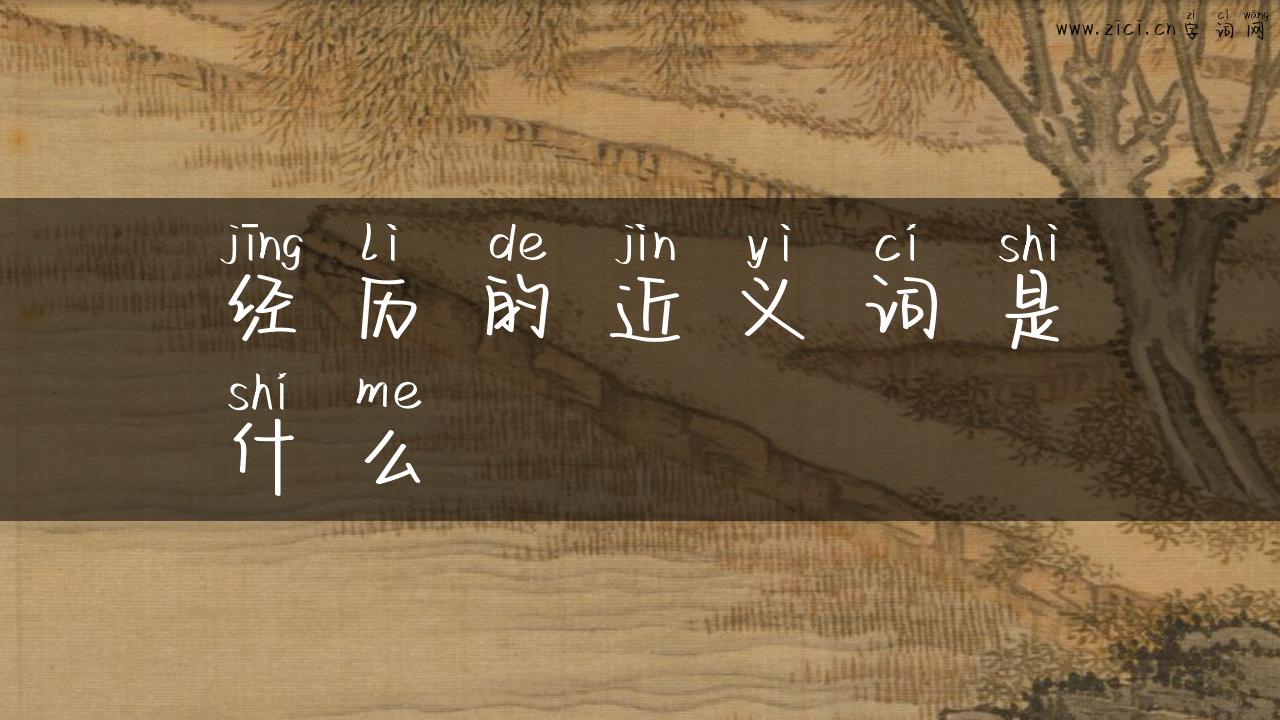 zì cí wǎng
www.zici.cn字词网
jīng lì de jìn yì cí shì
经历的近义词是
shí me
什么